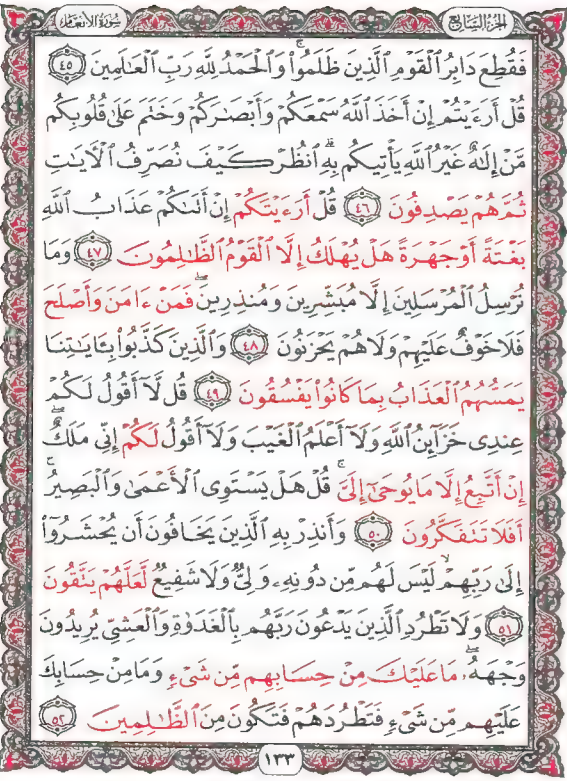 الجزء السابع سورة الأنعام
فَقُطِعَ دَابِرُ ٱلْقَوْمِ ٱلَّذِينَ ظَلَمُوا۟ ۚ وَٱلْحَمْدُ لِلَّهِ رَبِّ ٱلْعَـٰلَمِينَ ٤٥
قُلْ أَرَءَيْتُمْ إِنْ أَخَذَ ٱللَّهُ سَمْعَكُمْ وَأَبْصَـٰرَكُمْ وَخَتَمَ عَلَىٰ قُلُوبِكُم
مَّنْ إِلَـٰهٌ غَيْرُ ٱللَّهِ يَأْتِيكُم بِهِ ۗ ٱنظُرْ كَيْفَ نُصَرِّفُ ٱلْـَٔايَـٰتِ
ثُمَّ هُمْ يَصْدِفُونَ ٤٦ قُلْ أَرَءَيْتَكُمْ إِنْ أَتَىٰكُمْ عَذَابُ ٱللَّهِ
بَغْتَةً أَوْ جَهْرَةً هَلْ يُهْلَكُ إِلَّا ٱلْقَوْمُ ٱلظَّـٰلِمُونَ ٤٧ وَمَا
نُرْسِلُ ٱلْمُرْسَلِينَ إِلَّا مُبَشِّرِينَ وَمُنذِرِينَ ۖ فَمَنْ ءَامَنَ وَأَصْلَحَ
فَلَا خَوْفٌ عَلَيْهِمْ وَلَا هُمْ يَحْزَنُونَ ٤٨ وَٱلَّذِينَ كَذَّبُوا۟ بِـَٔايَـٰتِنَا
يَمَسُّهُمُ ٱلْعَذَابُ بِمَا كَانُوا۟ يَفْسُقُونَ ٤٩ قُل لَّآ أَقُولُ لَكُمْ
عِندِى خَزَآئِنُ ٱللَّهِ وَلَآ أَعْلَمُ ٱلْغَيْبَ وَلَآ أَقُولُ لَكُمْ إِنِّى مَلَكٌ ۖ
إِنْ أَتَّبِعُ إِلَّا مَا يُوحَىٰٓ إِلَىَّ ۚ قُلْ هَلْ يَسْتَوِى ٱلْأَعْمَىٰ وَٱلْبَصِيرُ ۚ
أَفَلَا تَتَفَكَّرُونَ ٥٠ وَأَنذِرْ بِهِ ٱلَّذِينَ يَخَافُونَ أَن يُحْشَرُوٓا۟
إِلَىٰ رَبِّهِمْ ۙ لَيْسَ لَهُم مِّن دُونِهِۦ وَلِىٌّ وَلَا شَفِيعٌ لَّعَلَّهُمْ يَتَّقُونَ
٥١ وَلَا تَطْرُدِ ٱلَّذِينَ يَدْعُونَ رَبَّهُم بِٱلْغَدَوٰةِ وَٱلْعَشِىِّ يُرِيدُونَ
وَجْهَهُۥ ۖ مَا عَلَيْكَ مِنْ حِسَابِهِم مِّن شَىْءٍ وَمَا مِنْ حِسَابِكَ
عَلَيْهِم مِّن شَىْءٍ فَتَطْرُدَهُمْ فَتَكُونَ مِنَ ٱلظَّـٰلِمِينَ ٥٢
١٣٣